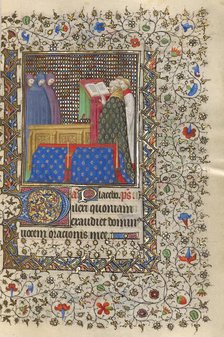 Placebo. ps
Dilexi quoniam
exaudiet domin
vocem orationis mee